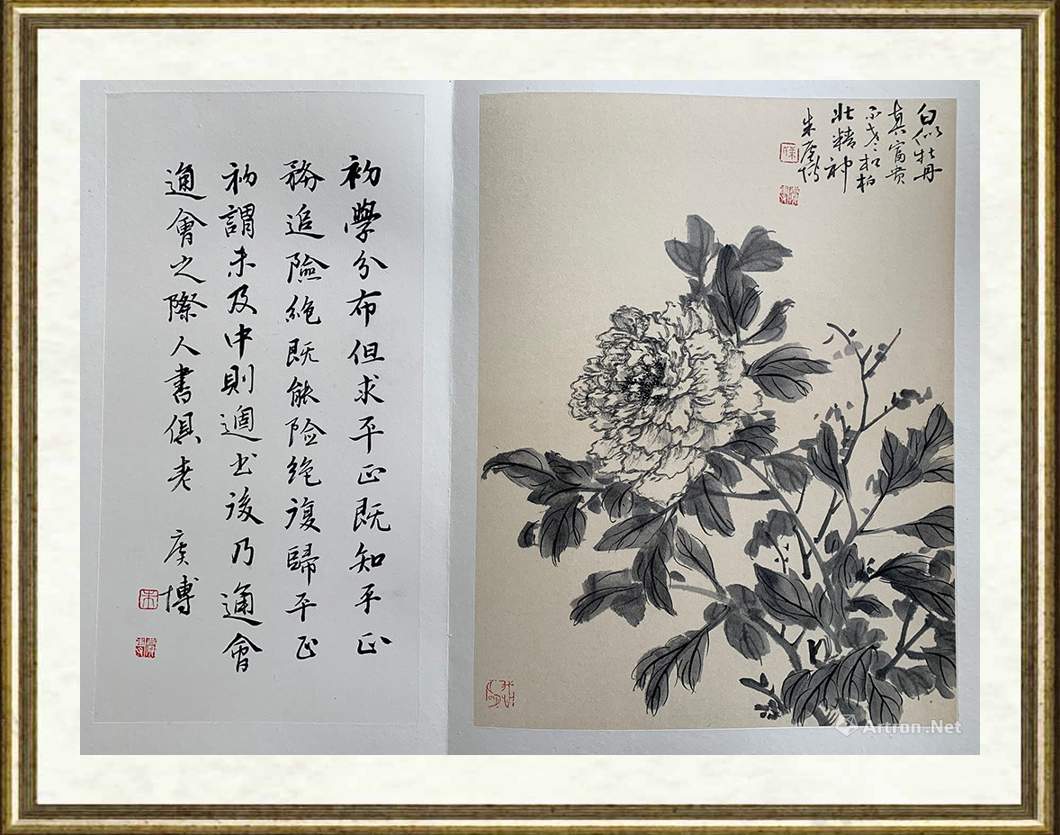 白似牡丹
真富贵
不老松柏
壮精神
朱
初學分布但求平正既知平正
務追險絕既能險絕復歸平正
初謂未及中則過书後乃通會
通會之際人書俱老 博
Artron.Net